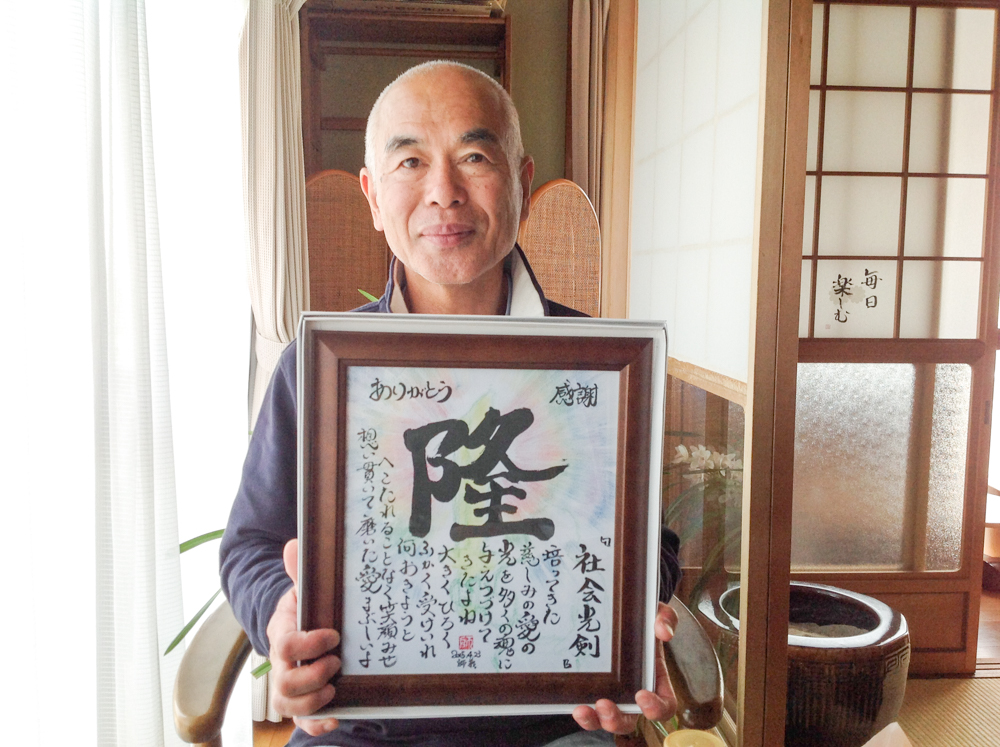 感謝
ありがとう
隆
「社会光剣」
培ってきた
慈しみの愛の
光を多くの魂に
与えつづけて
きたよね
大きくひろく
ふかく受けいれ
何おきようと
へこたれることなく笑顔みせ
想い貫いて磨いた愛まぶしいよ
毎日
楽しむ